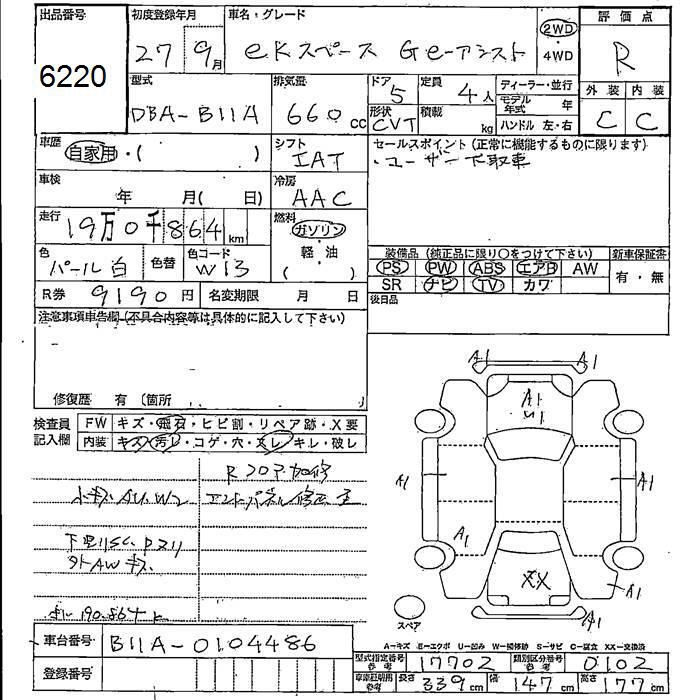 出品番号 初度登録年月 車名・グレード 評価点
6220 27 9月 eKスペース Ge-アシスト 2WD・4WD R
型式 排気量 ドア 定員 ディーラー・並行 外装 内装
DBA-B11A 660cc 5 4人 モデル年式 年 C C
形状 CVT 積載 kg ハンドル 左・右
車歴 自家用・( ) シフト IAT セールスポイント (正常に機能するものに限ります)
・ユーザー下取車
車検 年 月( 日) 冷房 AAC
走行 19万0千864km 燃料 ガソリン・軽・油( )
色 パール白 色替 色コード W13
装備品 (純正品に限り〇をつけて下さい) 新車保証書
PS PW ABS エアB AW 有・無
SR ナビ TV カワ
R券 9190円 名変期限 月 日 後日品
注意事項車告欄(不具合内容等は具体的に記入して下さい)
修復歴 有 (箇所
検査員記入欄 FW キズ・飛石・ヒビ割・リペア跡・X要
内装 キズ・汚レ・コゲ・穴・スレ・キレ・破レ
Rフロア加修
小キズ AU.W2 エンドパネル修正歪
外AWキズ
A1 A1
A1
U1
A1 A1
A1
XX A1
A1
スペア
A-キズ E-エクボ U-凹み W-補修跡 S-サビ C-腐食 XX-交換済
車台番号 B11A-0104486
型式指定番号 参考 17702 類別区分番号 参考 0102
登録番号
車庫証明用 参考 長さ 339cm 幅 147cm 高さ 177cm